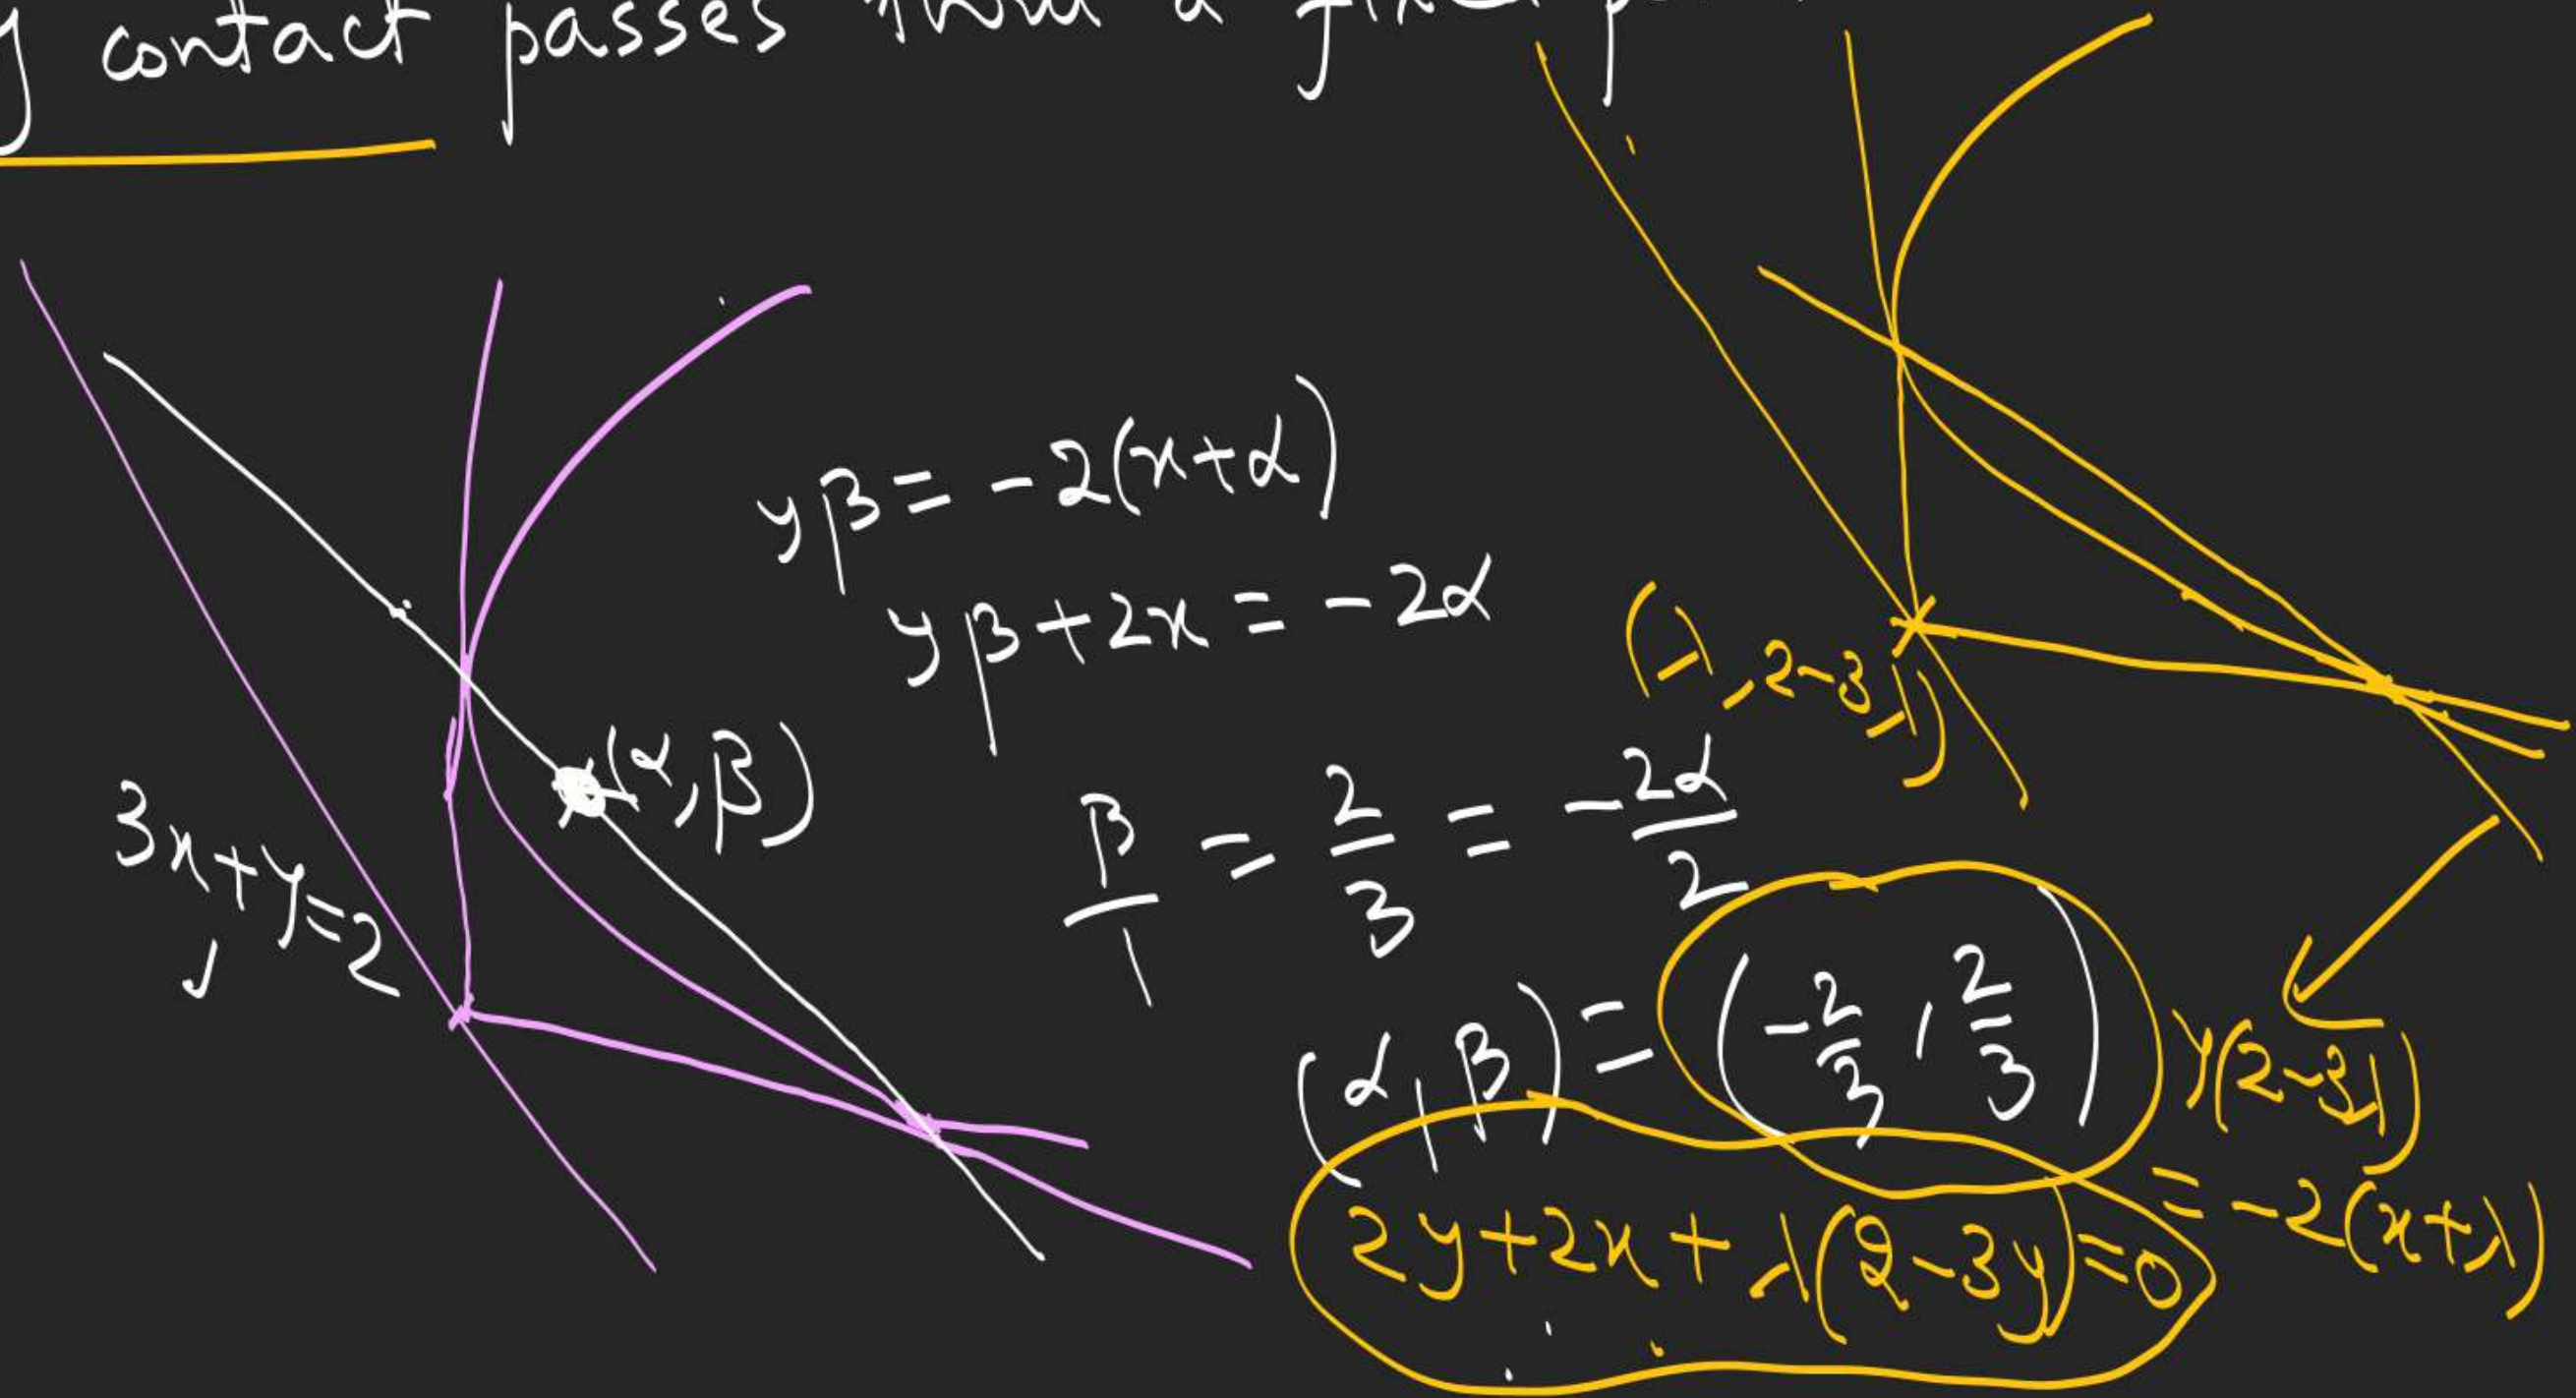 contact passes a
yβ = -2(x+α)
yβ+2x = -2α
(λ, 2-3λ)
(α, β)
3x+y=2
β/1 = 2/3 = -2α/2
(α, β) = (-2/3, 2/3)
y(2-3λ)
= -2(x+λ)
2y+2x+λ(2-3y)=0